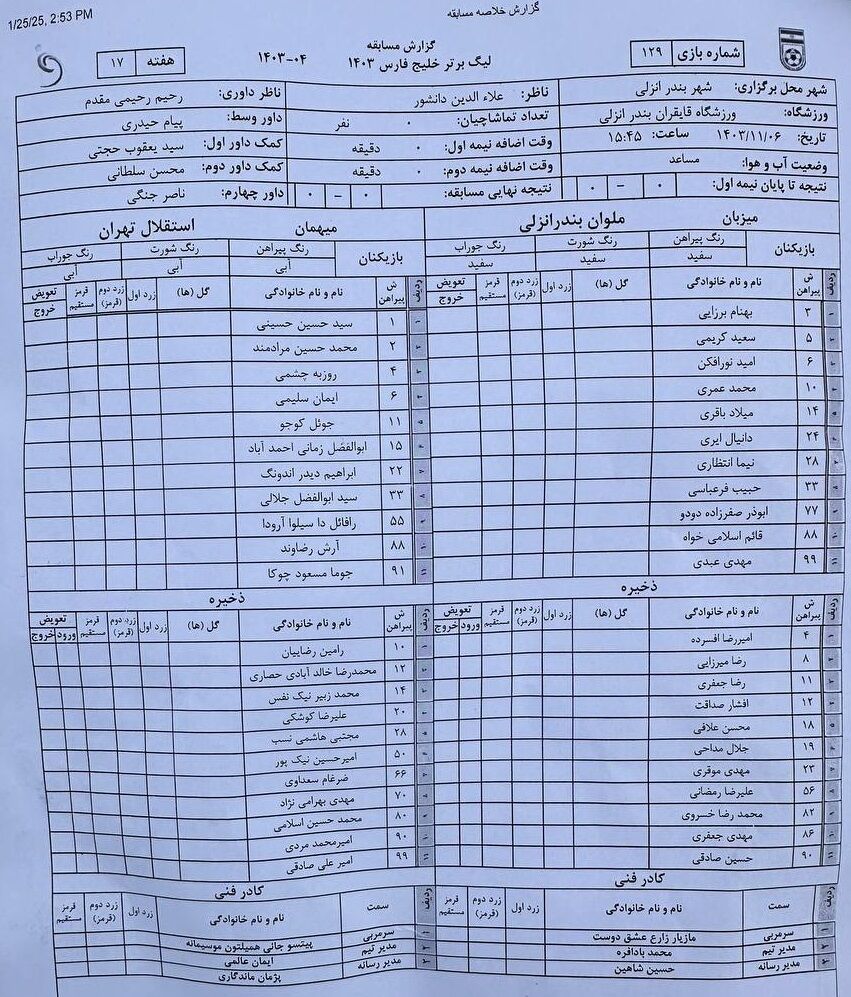 1/25/25, 2:53 PM
گزارش خلاصه مسابقه
گزارش مسابقه
شماره بازی ۱۲۹
لیگ برتر خلیج فارس ۱۴۰۳ ۱۴۰۳-۰۴
هفته ۱۷
شهر محل برگزاری: شهر بندر انزلی
ورزشگاه: ورزشگاه قایقران بندر انزلی
تاریخ: ۱۴۰۳/۱۱/۰۶ ساعت: ۱۵:۴۵
وضعیت آب و هوا: مساعد
نتیجه تا پایان نیمه اول: ۰ – ۰
ناظر: علاء الدین دانشور
تعداد تماشاچیان: ۰ نفر
وقت اضافه نیمه اول: ۰ دقیقه
وقت اضافه نیمه دوم: ۰ دقیقه
نتیجه نهایی مسابقه: ۰ – ۰
ناظر داوری: رحیم رحیمی مقدم
داور وسط: پیام حیدری
کمک داور اول: سید یعقوب حجتی
کمک داور دوم: محسن سلطانی
داور چهارم: ناصر جنگی
میزبان ملوان بندرانزلی
بازیکنان
رنگ پیراهن رنگ شورت رنگ جوراب
سفید سفید سفید
ردیف ش پیراهن نام و نام خانوادگی گل (ها) زرد اول زرد دوم (قرمز) قرمز مستقیم تعویض خروج
۱ ۳ بهنام برزایی
۲ ۵ سعید کریمی
۳ ۶ امید نورافکن
۴ ۱۰ محمد عمری
۵ ۱۴ میلاد باقری
۶ ۲۴ دانیال ایری
۷ ۲۸ نیما انتظاری
۸ ۳۳ حبیب فرعباسی
۹ ۷۷ ابوذر صفرزاده دودو
۱۰ ۸۸ قائم اسلامی خواه
۱۱ ۹۹ مهدی عبدی
ذخیره
ردیف ش پیراهن نام و نام خانوادگی گل (ها) زرد اول زرد دوم (قرمز) قرمز مستقیم تعویض ورود خروج
۱ ۴ امیررضا افسرده
۲ ۸ رضا میرزایی
۳ ۱۱ رضا جعفری
۴ ۱۲ افشار صداقت
۵ ۱۸ محسن علافی
۶ ۱۹ جلال مداحی
۷ ۲۳ مهدی موقری
۸ ۵۶ علیرضا رمضانی
۹ ۸۲ محمد رضا خسروی
۱۰ ۸۶ مهدی جعفری
۱۱ ۹۰ حسین صادقی
کادر فنی
ردیف سمت نام و نام خانوادگی زرد اول زرد دوم (قرمز) قرمز مستقیم
۱ سرمربی مازیار زارع عشق دوست
۲ مدیر تیم محمد بادافره
۳ مدیر رسانه حسین شاهین
میهمان استقلال تهران
بازیکنان
رنگ پیراهن رنگ شورت رنگ جوراب
آبی آبی آبی
ردیف ش پیراهن نام و نام خانوادگی گل (ها) زرد اول زرد دوم (قرمز) قرمز مستقیم تعویض خروج
۱ ۱ سید حسین حسینی
۲ ۲ محمد حسین مرادمند
۳ ۴ روزبه چشمی
۴ ۶ ایمان سلیمی
۵ ۱۱ جوئل کوجو
۶ ۱۵ ابوالفضل زمانی احمد آباد
۷ ۲۲ ابراهیم دیدر اندونگ
۸ ۳۳ سید ابوالفضل جلالی
۹ ۵۵ رافائل دا سیلوا آرودا
۱۰ ۸۸ آرش رضاوند
۱۱ ۹۱ جوما مسعود چوکا
ذخیره
ردیف ش پیراهن نام و نام خانوادگی گل (ها) زرد اول زرد دوم (قرمز) قرمز مستقیم تعویض ورود خروج
۱ ۱۰ رامین رضاییان
۲ ۱۲ محمدرضا خالد آبادی حصاری
۳ ۱۴ محمد زبیر نیک نفس
۴ ۲۰ علیرضا کوشکی
۵ ۲۸ مجتبی هاشمی نسب
۶ ۵۰ امیرحسین نیک پور
۷ ۶۶ ضرغام سعداوی
۸ ۷۰ مهدی بهرامی نژاد
۹ ۸۰ محمد حسین اسلامی
۱۰ ۹۰ امیرمحمد مردی
۱۱ ۹۹ امیر علی صادقی
کادر فنی
ردیف سمت نام و نام خانوادگی زرد اول زرد دوم (قرمز) قرمز مستقیم
۱ سرمربی پیتسو جانی همیلتون موسیمانه
۲ مدیر تیم ایمان عالمی
۳ مدیر رسانه پژمان ماندگاری